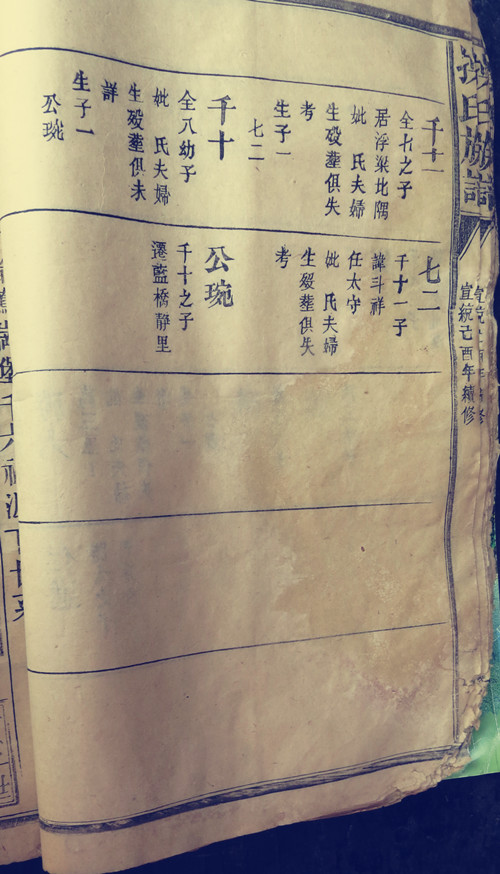 操氏族譜
宣統己酉年續修
千十一
全七之子
居浮梁北隅
妣 氏夫婦
生殁塟俱失
考
生子一
七二
千十
全八幼子
妣 氏夫婦
生殁塟俱未
詳
生子一
公琬
七二
千十一子
諱斗祥
任太守
妣 氏夫婦
生殁塟俱失
考
公琬
千十之子
遷藍橋靜里